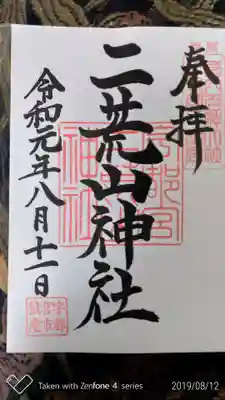 奉拝
二荒山神社
令和元年八月十一日
Taken with Zenfone 4 series
2019/08/12